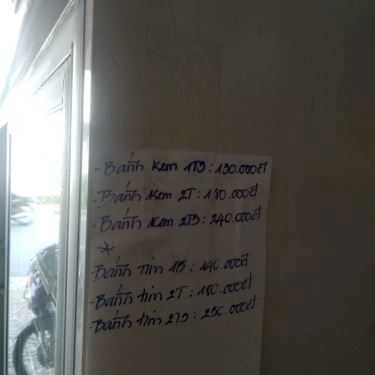 - Bánh kem 1T5 : 130.000đ
- Bánh kem 2T : 180.000đ
- Bánh kem 2T5 : 240.000đ
*
- Bánh tim 1T5 : 140.000đ
- Bánh tim 2T : 180.000đ
- Bánh tim 2T5 : 250.000đ